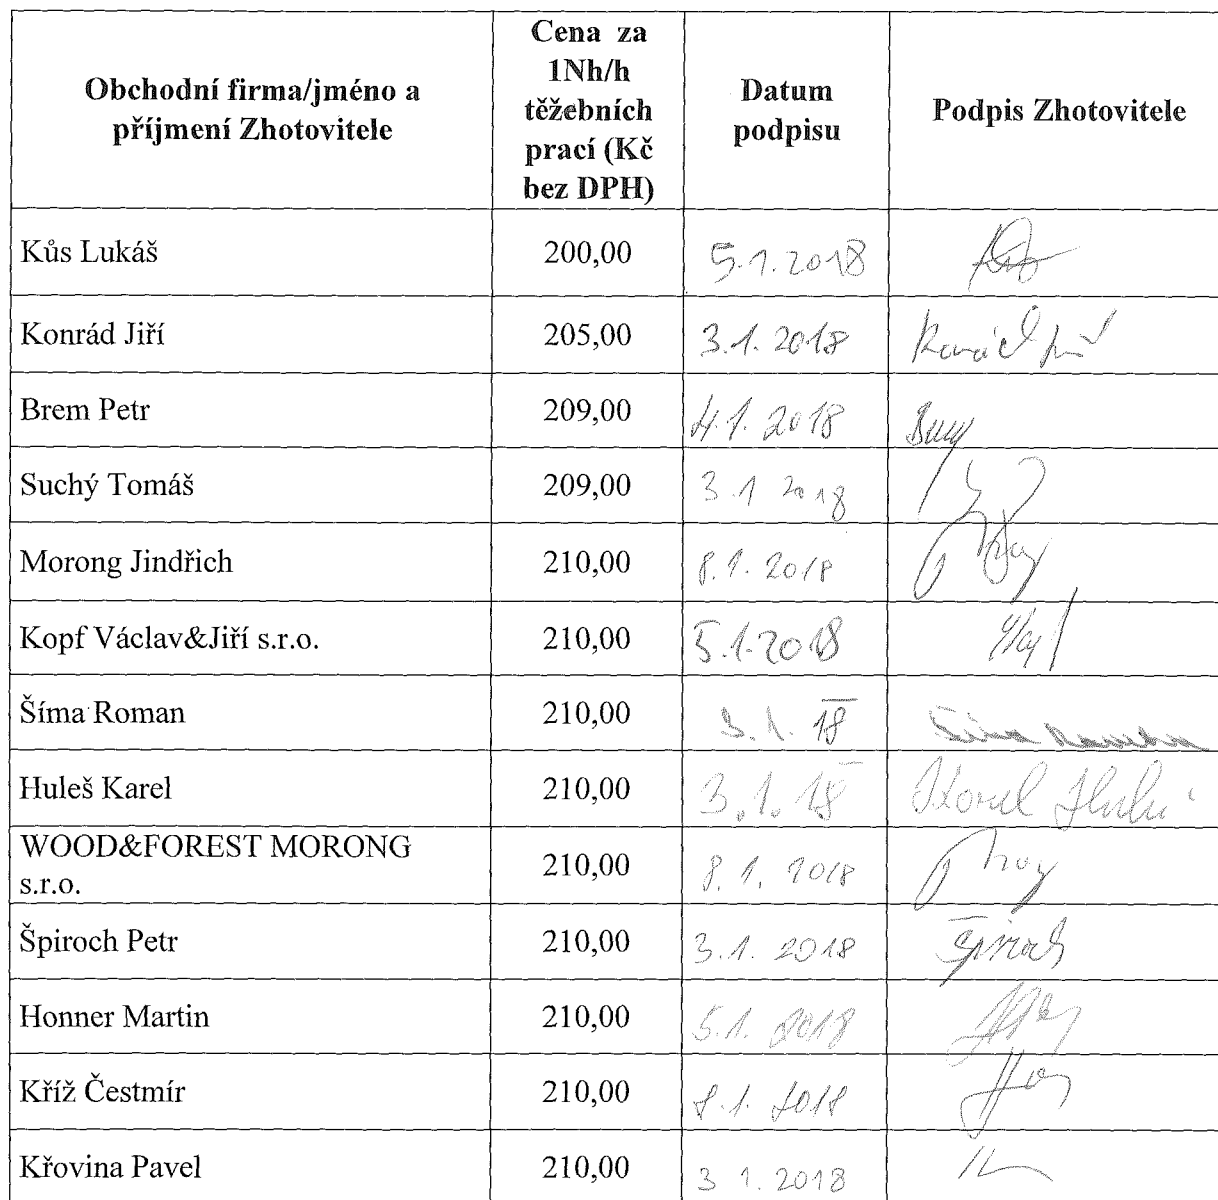 Obchodní firma/jméno a
příjmení Zhotovitele
Cena za
1Nh/h
těžebních
prací (Kč
bez DPH)
Datum
podpisu
Podpis Zhotovitele
Kůs Lukáš 200,00 5.1.2018
Konrád Jiří 205,00 3.1.2018
Brem Petr 209,00 4.1.2018
Suchý Tomáš 209,00 3.1 2018
Morong Jindřich 210,00 8.1.2018
Kopf Václav&Jiří s.r.o. 210,00 5.1.2018
Šíma Roman 210,00 3.1.18
Huleš Karel 210,00 3.1.18 Karel Huleš
WOOD&FOREST MORONG
s.r.o.
210,00 8.1.2018
Špiroch Petr 210,00 3.1.2018 Špiroch
Honner Martin 210,00 5.1.2018
Kříž Čestmír 210,00 8.1.2018
Křovina Pavel 210,00 3 1.2018